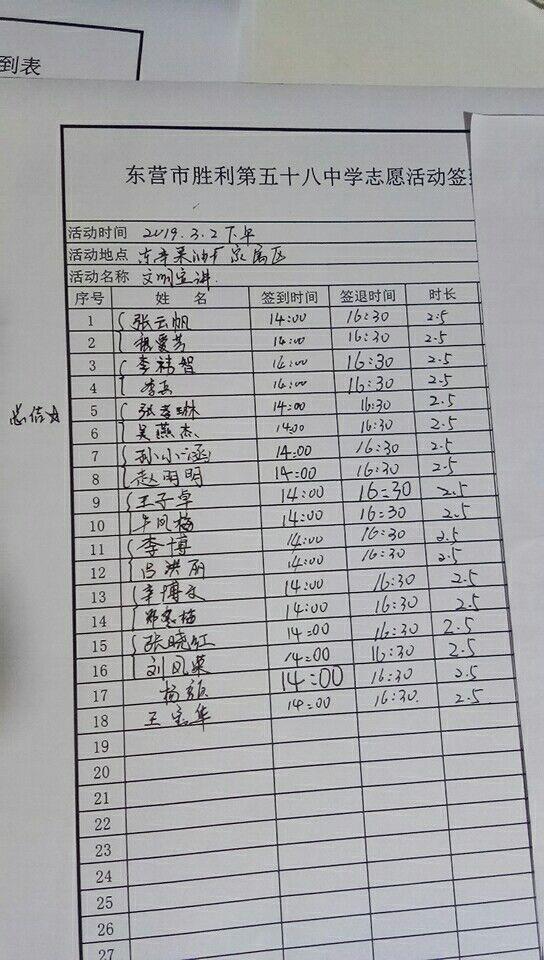 到表
东营市胜利第五十八中学志愿活动签到
活动时间 2019.3.2下午
活动地点 东辛采油厂家属区
活动名称 文明宣讲
序号 姓 名 签到时间 签退时间 时长
1 张云帆 14:00 16:30 2.5
2 爱芳 14:00 16:30 2.5
3 李禧智 14:00 16:30 2.5
4 李 14:00 16:30 2.5
5 张孝琳 14:00 16:30 2.5
6 吴燕杰 14:00 16:30 2.5
7 孙小涵 14:00 16:30 2.5
8 赵明明 14:00 16:30 2.5
9 王子卓 14:00 16:30 2.5
10 牛凤梅 14:00 16:30 2.5
11 李博 14:00 16:30 2.5
12 吕洪丽 14:00 16:30 2.5
13 李博文 14:00 16:30 2.5
14 郑冬梅 14:00 16:30 2.5
15 张晓红 14:00 16:30 2.5
16 刘凤荣 14:00 16:30 2.5
17 杨 14:00 16:30 2.5
18 王宝华 14:00 16:30 2.5
19
20
21
22
23
24
25
26
27